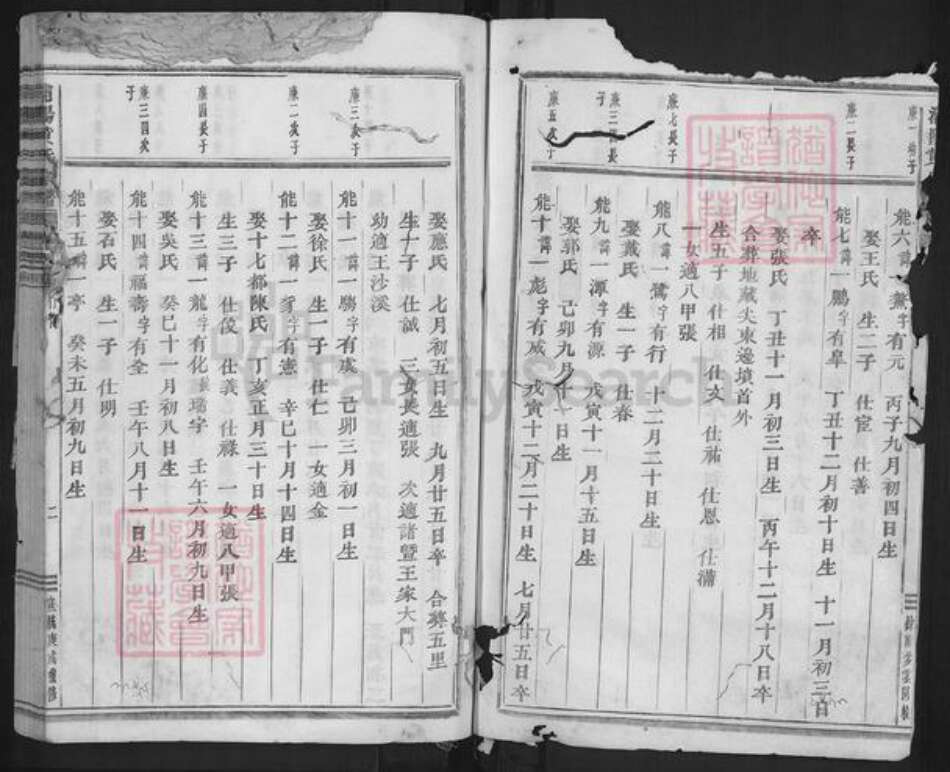 廉一次子
能六諱一鰲字有元 丙子九月初四日生
娶王氏 生二子 仕宦 仕善
廉二長子
能七諱一鵬字有皐 丁丑十二月初十日生 十一月初三日
卒
娶張氏 丁丑十一月初三日生 丙午十二月十八日卒
合葬地藏尖東邊墳首外
生五子 仕相 仕文 仕祐 仕恩 仕滿
一女適八甲張
廉七長子
能八諱一鷺字有行 十二月二十日生
娶戴氏 生一子 仕春
廉三四長子
能九諱一潭字有源 戊寅十一月十五日生
娶郭氏 己卯九月 日生
廉五次子
能十諱一彪字有威 戊寅十二月二十日生 七月廿五日卒
娶應氏 七月初五日生 九月廿五日卒 合葬五里
生一子 仕誠 三女長適張 次適諸暨王家大門
幼適王沙溪
廉三次子
能十一諱一驣字有虞 己卯三月初一日生
娶徐氏 生一子 仕仁 一女適金
廉一二次子
能十二諱一豸字有憲 辛巳十月十四日生
娶十七都陳氏 丁亥正月三十日生
生三子 仕俊 仕義 仕祿 一女適八甲張
廉四長子
能十三諱一龍字有化 瑞字 壬午六月初九日生
娶吳氏 癸巳十一月初八日生
廉三四次子
能十四諱一福壽字有全 壬午八月十一日生
娶石氏 生一子 仕明
能十五諱一亭 癸未五月初九日生
二
FamilySearch